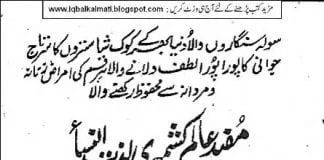 مزید کتب پڑھنے کے لئے آج ہی وزٹ کریں : www.iqbalkalmati.blogspot.com
سولہ سنگاروں والا دنیا بھر کے کوک شاستروں کا نتاج
جوانی کا پورا پورا لطف دلانے والا ہر قسم کی امراض زنانہ
و مردانہ سے محفوظ رکھنے والا
مفید عالم کشمیری النساء